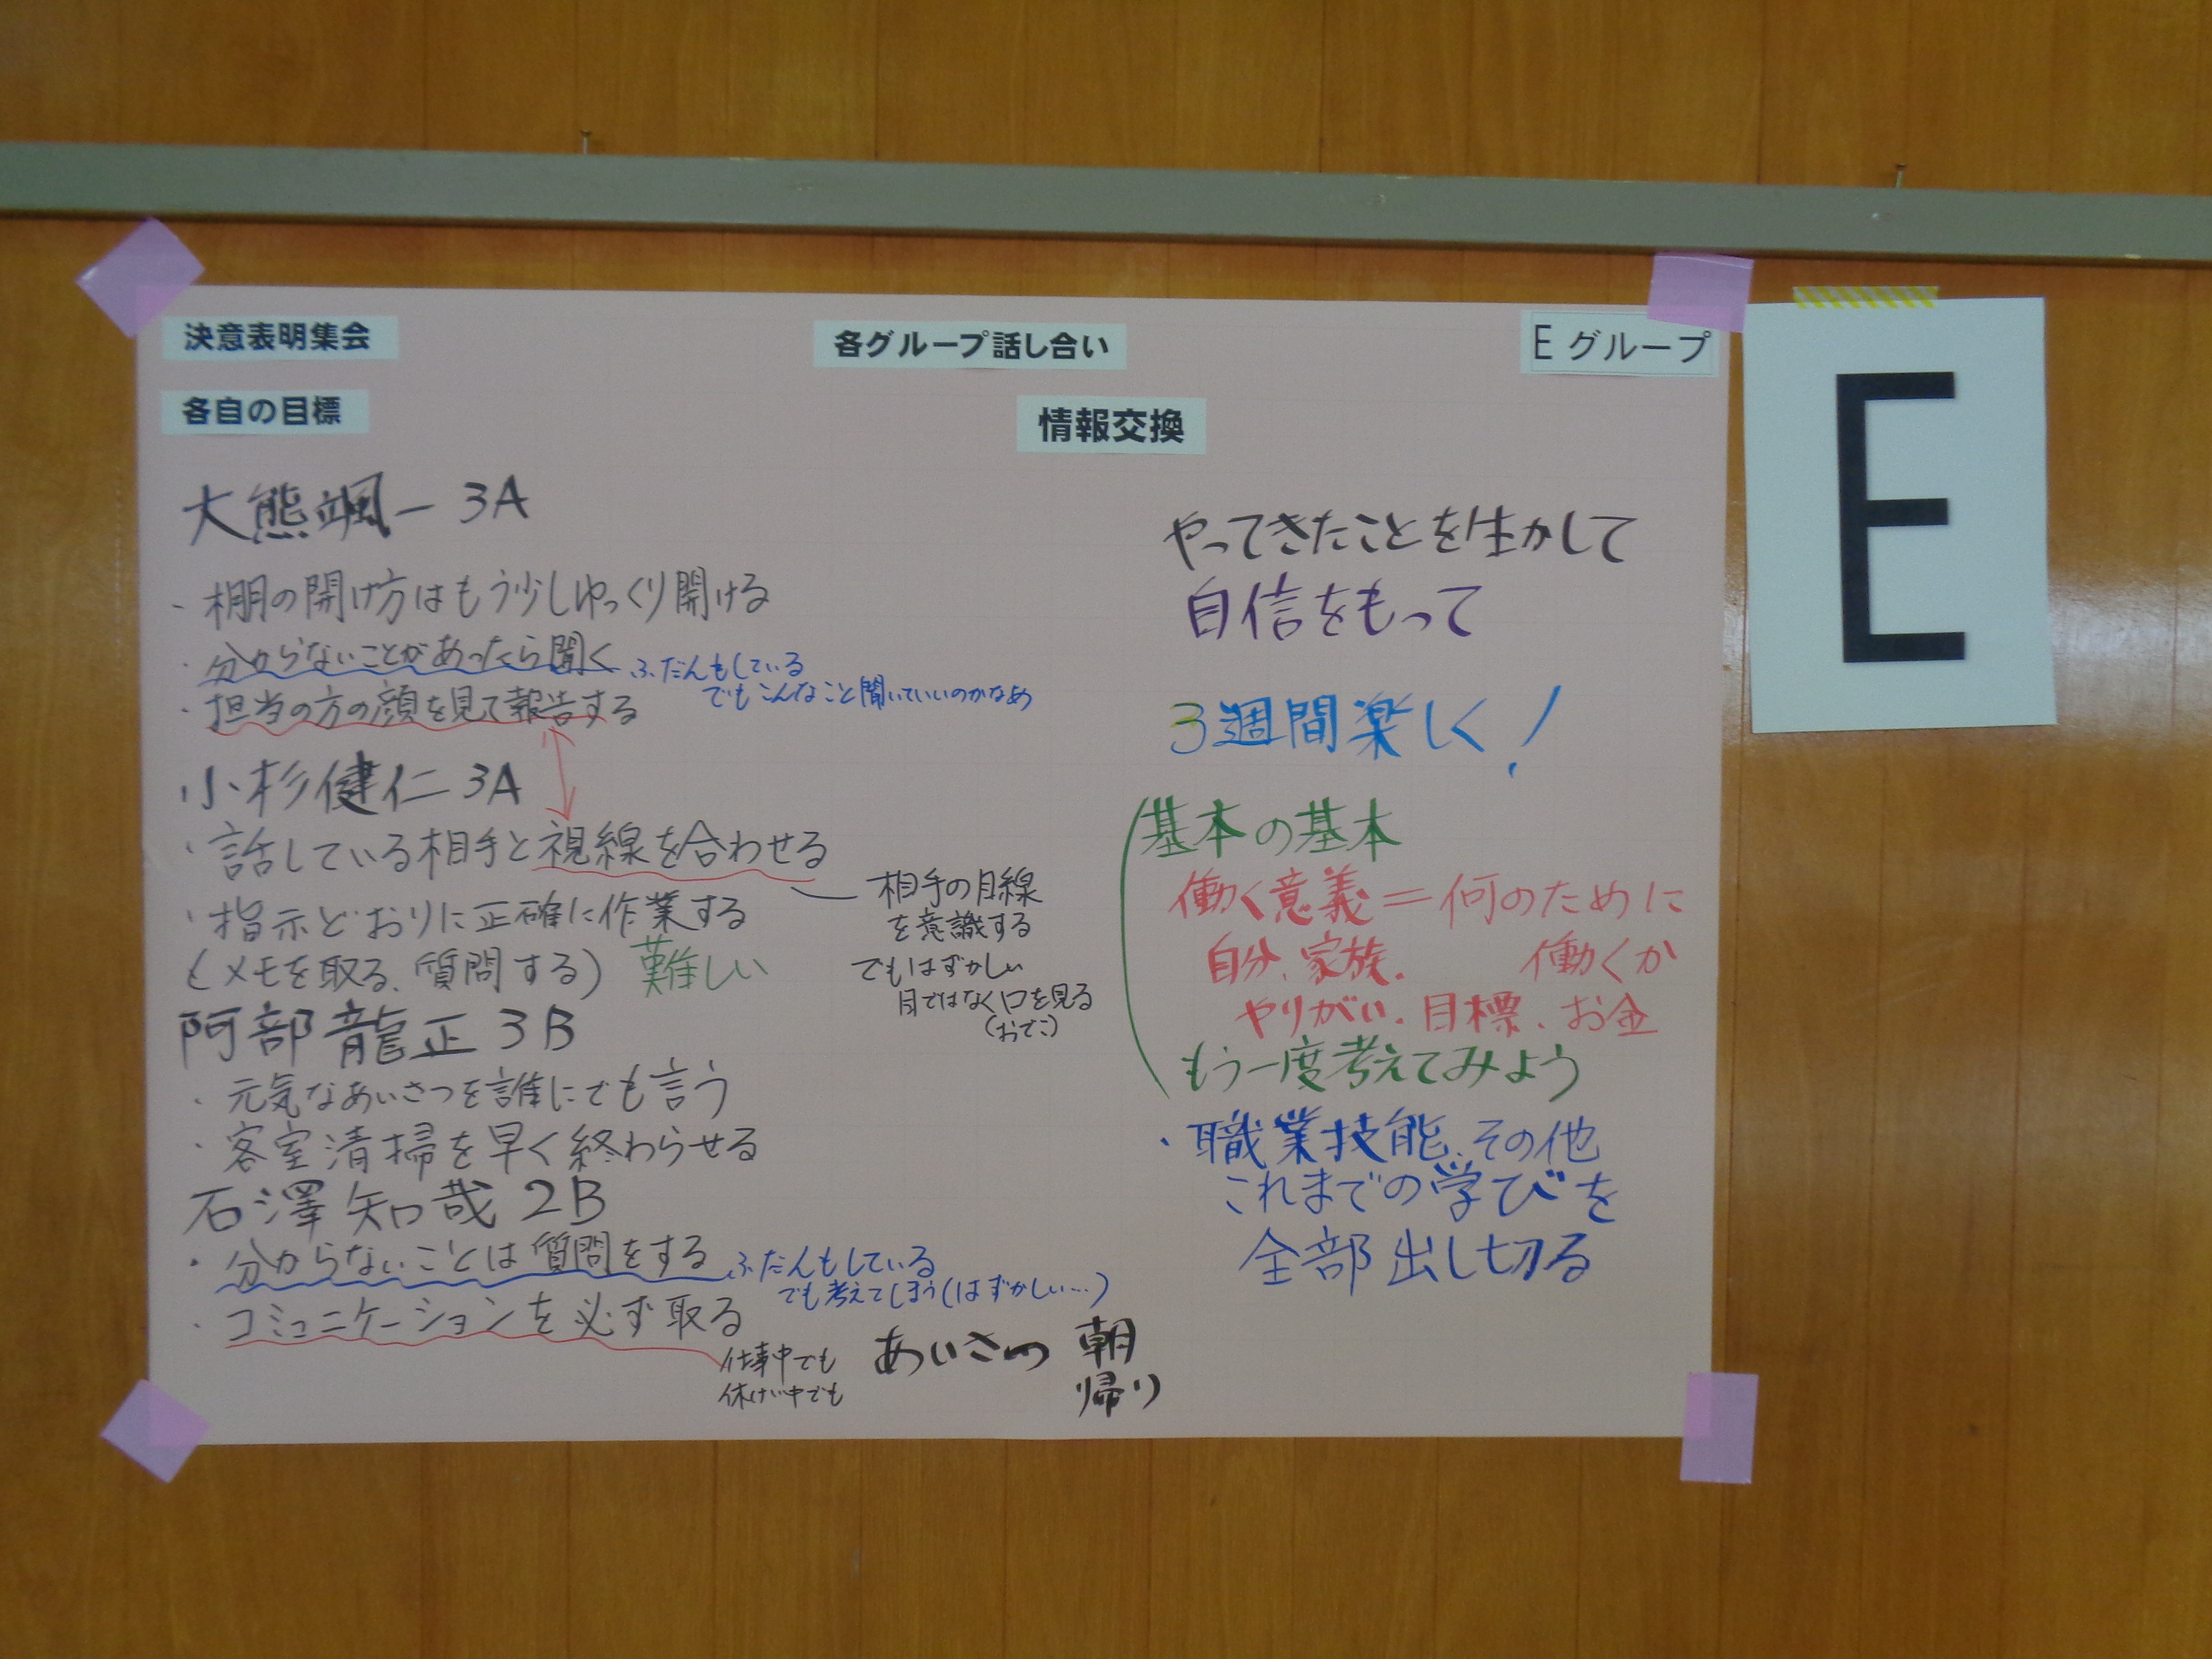 決意表明集会
各グループ話し合い
E グループ
E
各自の目標
情報交換
大熊颯一 3A
・棚の開け方はもう少しゆっくり開ける
・分からないことがあったら聞く
ふだんもしている
でもこんなこと聞いていいのかなぁ
・担当の方の顔を見て報告する
小杉健仁 3A
・話している相手と視線を合わせる
相手の目線
を意識する
でもはずかしい
目ではなく口を見る
(おでこ)
・指示どおりに正確に作業する
(メモを取る、質問する) 難しい
阿部龍正 3B
・元気なあいさつを誰にでも言う
・客室清掃を早く終わらせる
石澤知哉 2B
・分からないことは質問をする
ふだんもしている
でも考えてしまう(はずかしい…)
・コミュニケーションを必ず取る
仕事中でも
休けい中でも
あいさつ 朝
帰り
やってきたことを生かして
自信をもって
3週間楽しく!
基本の基本
働く意義=何のために
働くか
自分、家族、
やりがい、目標、お金
もう一度考えてみよう
・職業技能、その他
これまでの学びを
全部出し切る